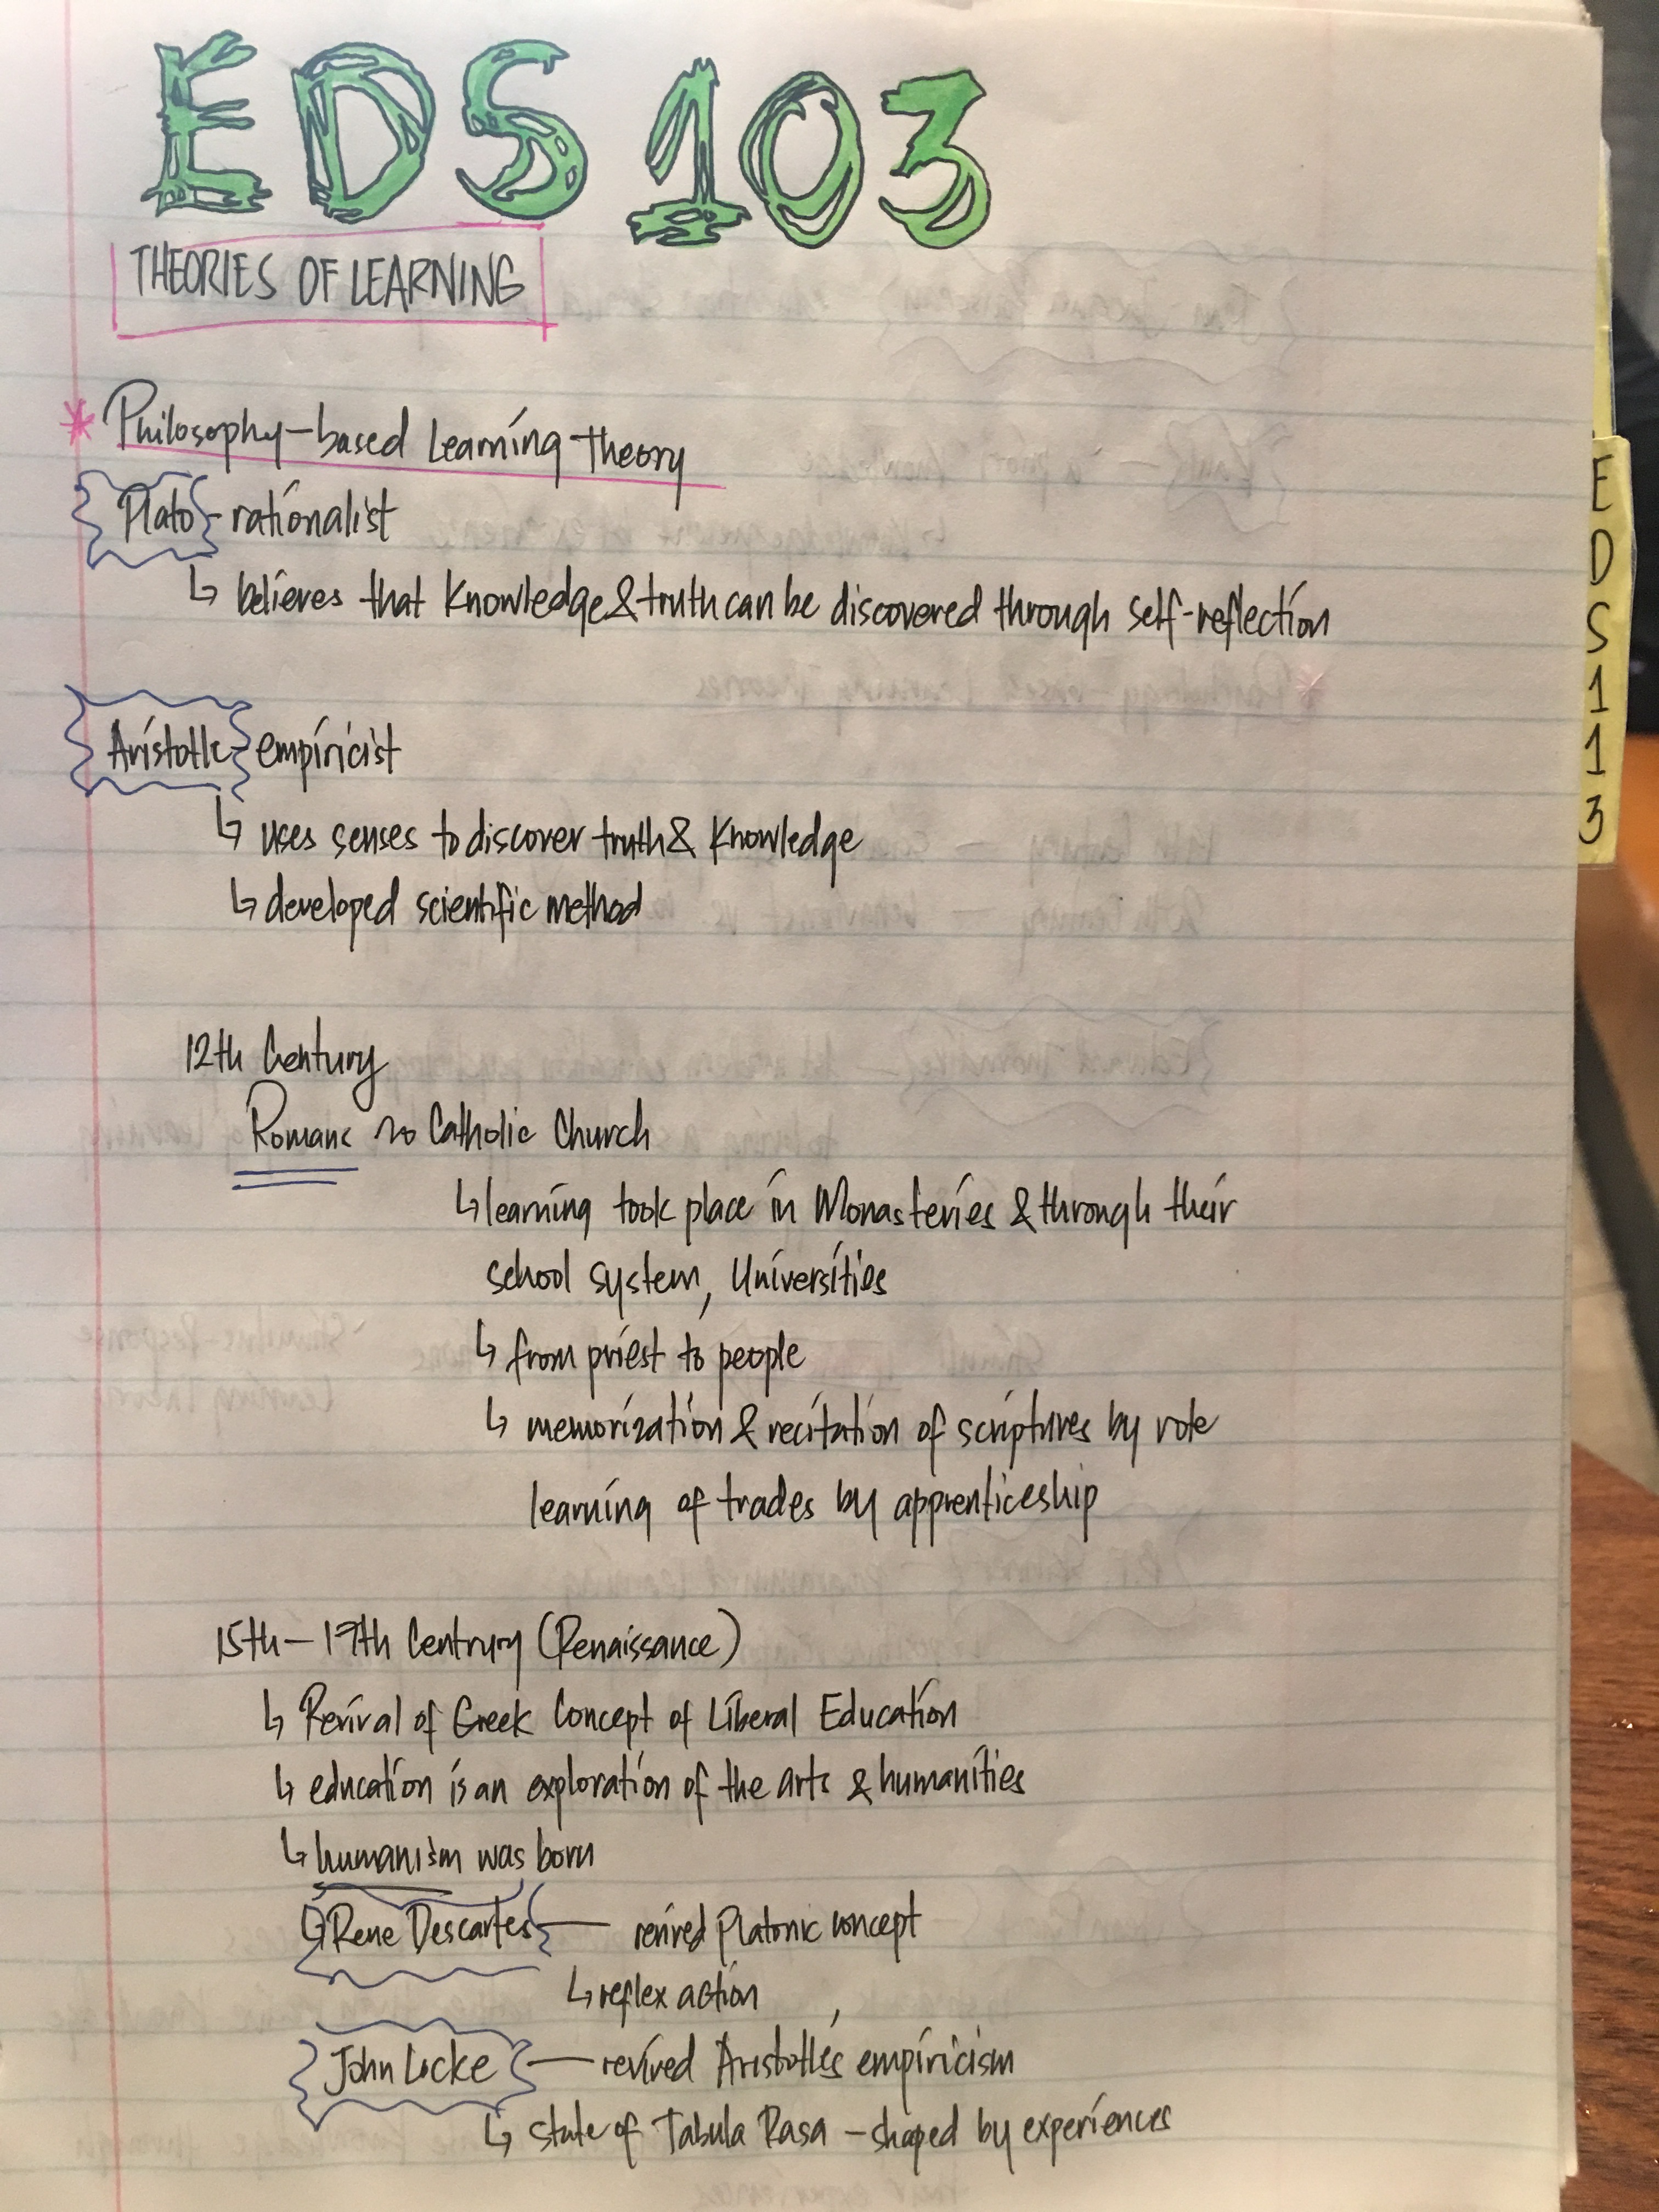 EDS 103
THEORIES OF LEARNING
* Philosophy-based Learning theory
Plato - rationalist
↳ believes that knowledge & truth can be discovered through self-reflection
Aristotle - empiricist
↳ uses senses to discover truth & knowledge
↳ developed scientific method
12th Century
Romans ~> Catholic Church
↳ learning took place in Monasteries & through their
school system, Universities
↳ from priest to people
↳ memorization & recitation of scriptures by rote
learning of trades by apprenticeship
15th - 17th Centrury (Renaissance)
↳ Revival of Greek Concept of Liberal Education
↳ education is an exploration of the arts & humanities
↳ humanism was born
↳ Rene Descartes — revived Platonic concept
↳ reflex action
John Locke — revived Aristotle's empiricism
↳ state of Tabula Rasa - shaped by experiences
EDS113